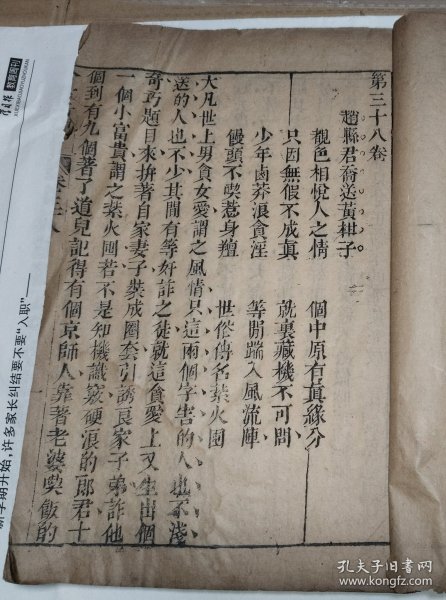 第三十八卷
趙縣君喬送黃柑子
覩色相悅人之情　個中原有真緣分
只因無假不成真　就裏藏機不可問
少年鹵莽浪貪淫　等閒踹入風流陣
饅頭不喫惹身羶　世俗傳名紮火囤
大凡世上男貪女愛謂之風情只這兩個字害的人也不淺
送的人也不少其間有等奸詐之徒就這貪愛上又生出個
奇巧題目來拚著自家妻子裝成圈套引誘良家子弟詐他
一個小富貴謂之紮火囤若不是知機識竅硬浪的郎君十
個到有九個著了道兒記得有個京師人靠著老婆喫飯的
卷三十八
新学期开始,许多家长纠结要不要“入职”——
孔夫子旧书网
www.kongfz.com